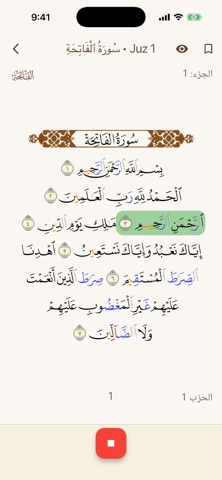 9:41
Juz 1 • سُورَةُ ٱلْفَاتِحَةِ
الجزء: 1
الفاتحة
سُورَةُ الْفَاتِحَةِ
بِسْمِ ٱللَّهِ ٱلرَّحْمَٰنِ ٱلرَّحِيمِ ١
ٱلْحَمْدُ لِلَّهِ رَبِّ ٱلْعَٰلَمِينَ ٢
ٱلرَّحْمَٰنِ ٱلرَّحِيمِ ٣ مَٰلِكِ يَوْمِ ٱلدِّينِ ٤
إِيَّاكَ نَعْبُدُ وَإِيَّاكَ نَسْتَعِينُ ٥ ٱهْدِنَا
ٱلصِّرَٰطَ ٱلْمُسْتَقِيمَ ٦ صِرَٰطَ ٱلَّذِينَ أَنْعَمْتَ
عَلَيْهِمْ غَيْرِ ٱلْمَغْضُوبِ عَلَيْهِمْ
وَلَا ٱلضَّآلِّينَ ٧
الحزب 1
1